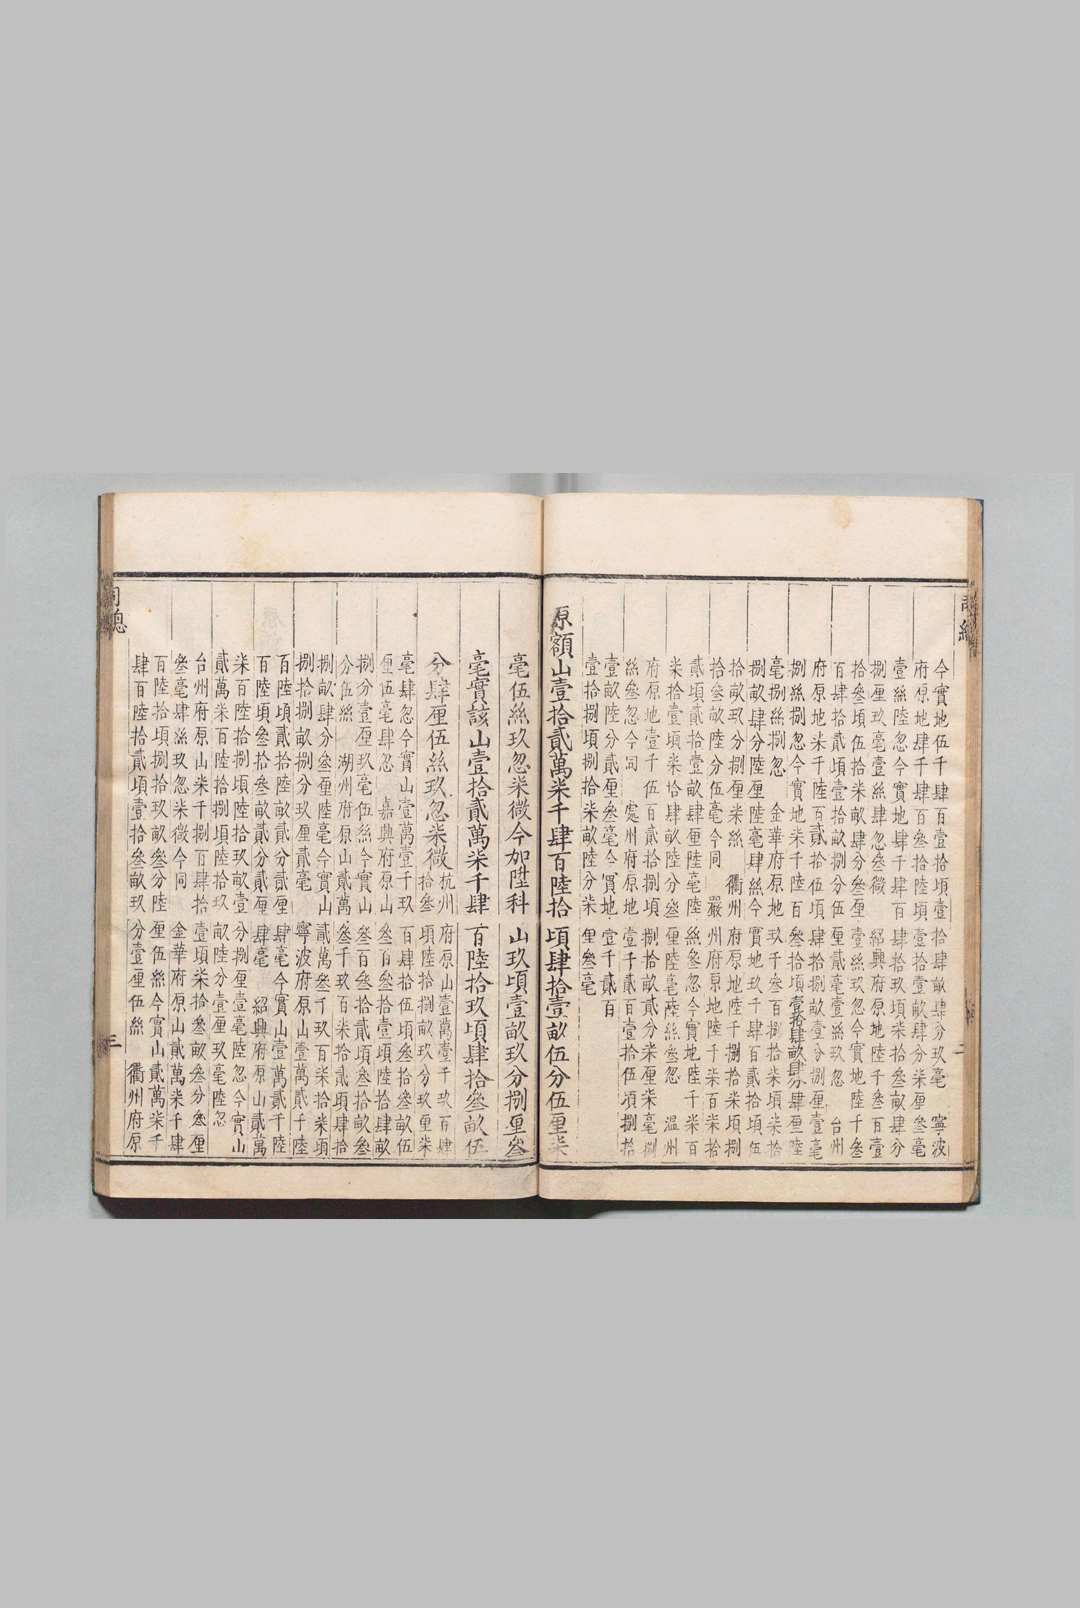 今實地伍千肆百壹拾頃壹拾肆畝肆分玖毫　寧波
府原地肆千肆百叁拾陸頃壹拾壹畝柒分柒厘叁毫
壹絲陸忽今實地肆千肆百肆拾玖頃柒拾叁畝肆分
捌厘玖毫壹絲肆忽叁微　紹興府原地陸千叁百壹
拾叁頃伍拾柒畝肆分叁厘壹絲玖忽今實地陸千叁
百肆拾貳頃壹拾畝捌分伍厘貳毫壹絲玖忽　台州
府原地柒千陸百貳拾伍頃肆拾捌畝壹分捌厘壹毫
捌絲捌忽今實地柒千陸百叁拾頃壹拾肆畝肆分肆厘陸
毫捌絲捌忽　金華府原地玖千叁百捌拾柒頃柒拾
捌畝肆分陸厘陸毫肆絲今實地玖千肆百貳拾頃伍
拾畝玖分捌厘柒絲　衢州府原地陸千捌拾柒頃捌
拾叁畝陸分伍毫今同　嚴州府原地陸千柒百柒拾
貳頃貳拾壹畝肆厘陸毫陸絲叁忽今實地陸千柒百
柒拾壹頃柒拾肆畝陸分叁厘陸毫陸絲叁忽　溫州
府原地壹千伍百貳拾捌頃捌拾畝貳分柒厘柒毫捌
絲叁忽今同　處州府原地壹千貳百壹拾伍頃捌拾
壹畝陸分貳厘叁毫今實地壹千貳百
壹拾捌頃捌拾柒畝陸分柒厘叁毫
原額山壹拾貳萬柒千肆百陸拾頃肆拾壹畝伍分伍厘柒
毫伍絲玖忽柒微今加陞科山玖頃壹畝玖分捌厘叁
毫實該山壹拾貳萬柒千肆百陸拾玖頃肆拾叁畝伍
分肆厘伍絲玖忽柒微
杭州府原山壹萬壹千玖百肆
拾叁頃陸拾捌畝玖分玖厘柒
毫肆忽今實山壹萬壹千玖百肆拾伍頃叁拾叁畝伍
厘伍毫肆忽　嘉興府原山叁百叁拾壹頃陸拾肆畝
捌分壹厘玖毫伍絲今實山叁百叁拾貳頃叁拾畝叁
分伍絲　湖州府原山貳萬叁千玖百柒拾貳頃肆拾
捌畝肆分叁厘陸毫今實山貳萬叁千玖百柒拾柒頃
捌拾捌畝捌分玖厘貳毫　寧波府原山壹萬貳千陸
百陸頃貳拾陸畝貳分貳厘肆毫今實山壹萬貳千陸
百陸頃叁拾叁畝貳分貳厘肆毫　紹興府原山貳萬
柒百陸拾捌頃陸拾玖畝壹分捌厘壹毫陸忽今實山
貳萬柒百陸拾捌頃陸拾玖畝陸分壹厘玖毫陸忽
台州府原山柒千捌百肆拾壹頃柒拾叁畝叁分叁厘
叁毫肆絲玖忽柒微今同　金華府原山貳萬柒千肆
百陸拾頃捌拾玖畝叁分陸厘伍絲今實山貳萬柒千
肆百陸拾貳頃壹拾叁畝玖分壹厘伍絲　衢州府原
三